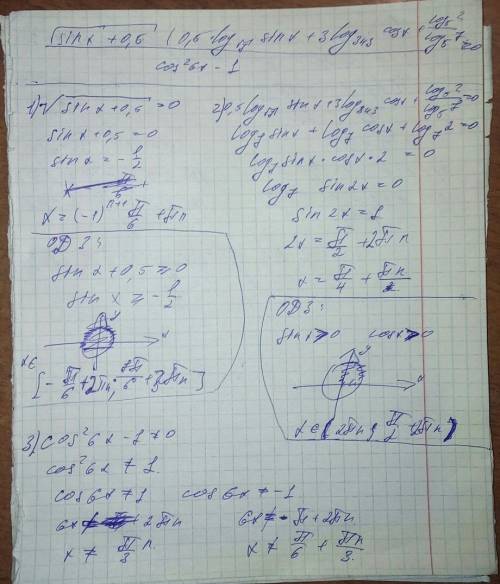 √(sinx + 0,5) (0,5 log_√7 sinx + 3log_343 cosx + log_5 2 / log_5 7) = 0
cos²6x - 1
1) √(sinx + 0,5) = 0
sinx + 0,5 = 0
sinx = - 1/2
x = (-1)^(n+1) π/6 + πn
ОДЗ:
sinx + 0,5 ≥ 0
sin x ≥ - 1/2
y
x
x ∈
[- π/6 + 2πn; 7π/6 + 2πn]
2) 0,5 log_√7 sinx + 3log_343 cosx + log_5 2 / log_5 7 = 0
log_7 sinx + log_7 cosx + log_7 2 = 0
log_7 sinx · cosx · 2 = 0
log_7 sin2x = 0
sin 2x = 1
2x = π/2 + 2πn
x = π/4 + πn
ОДЗ:
sinx > 0 cosx > 0
y
x
x ∈ (2πn; π/2 + 2πn)
3) cos²6x - 1 ≠ 0
cos²6x ≠ 1
cos6x ≠ 1 cos6x ≠ -1
6x ≠ 2πn 6x ≠ π + 2πn
x ≠ πn/3 x ≠ π/6 + πn/3